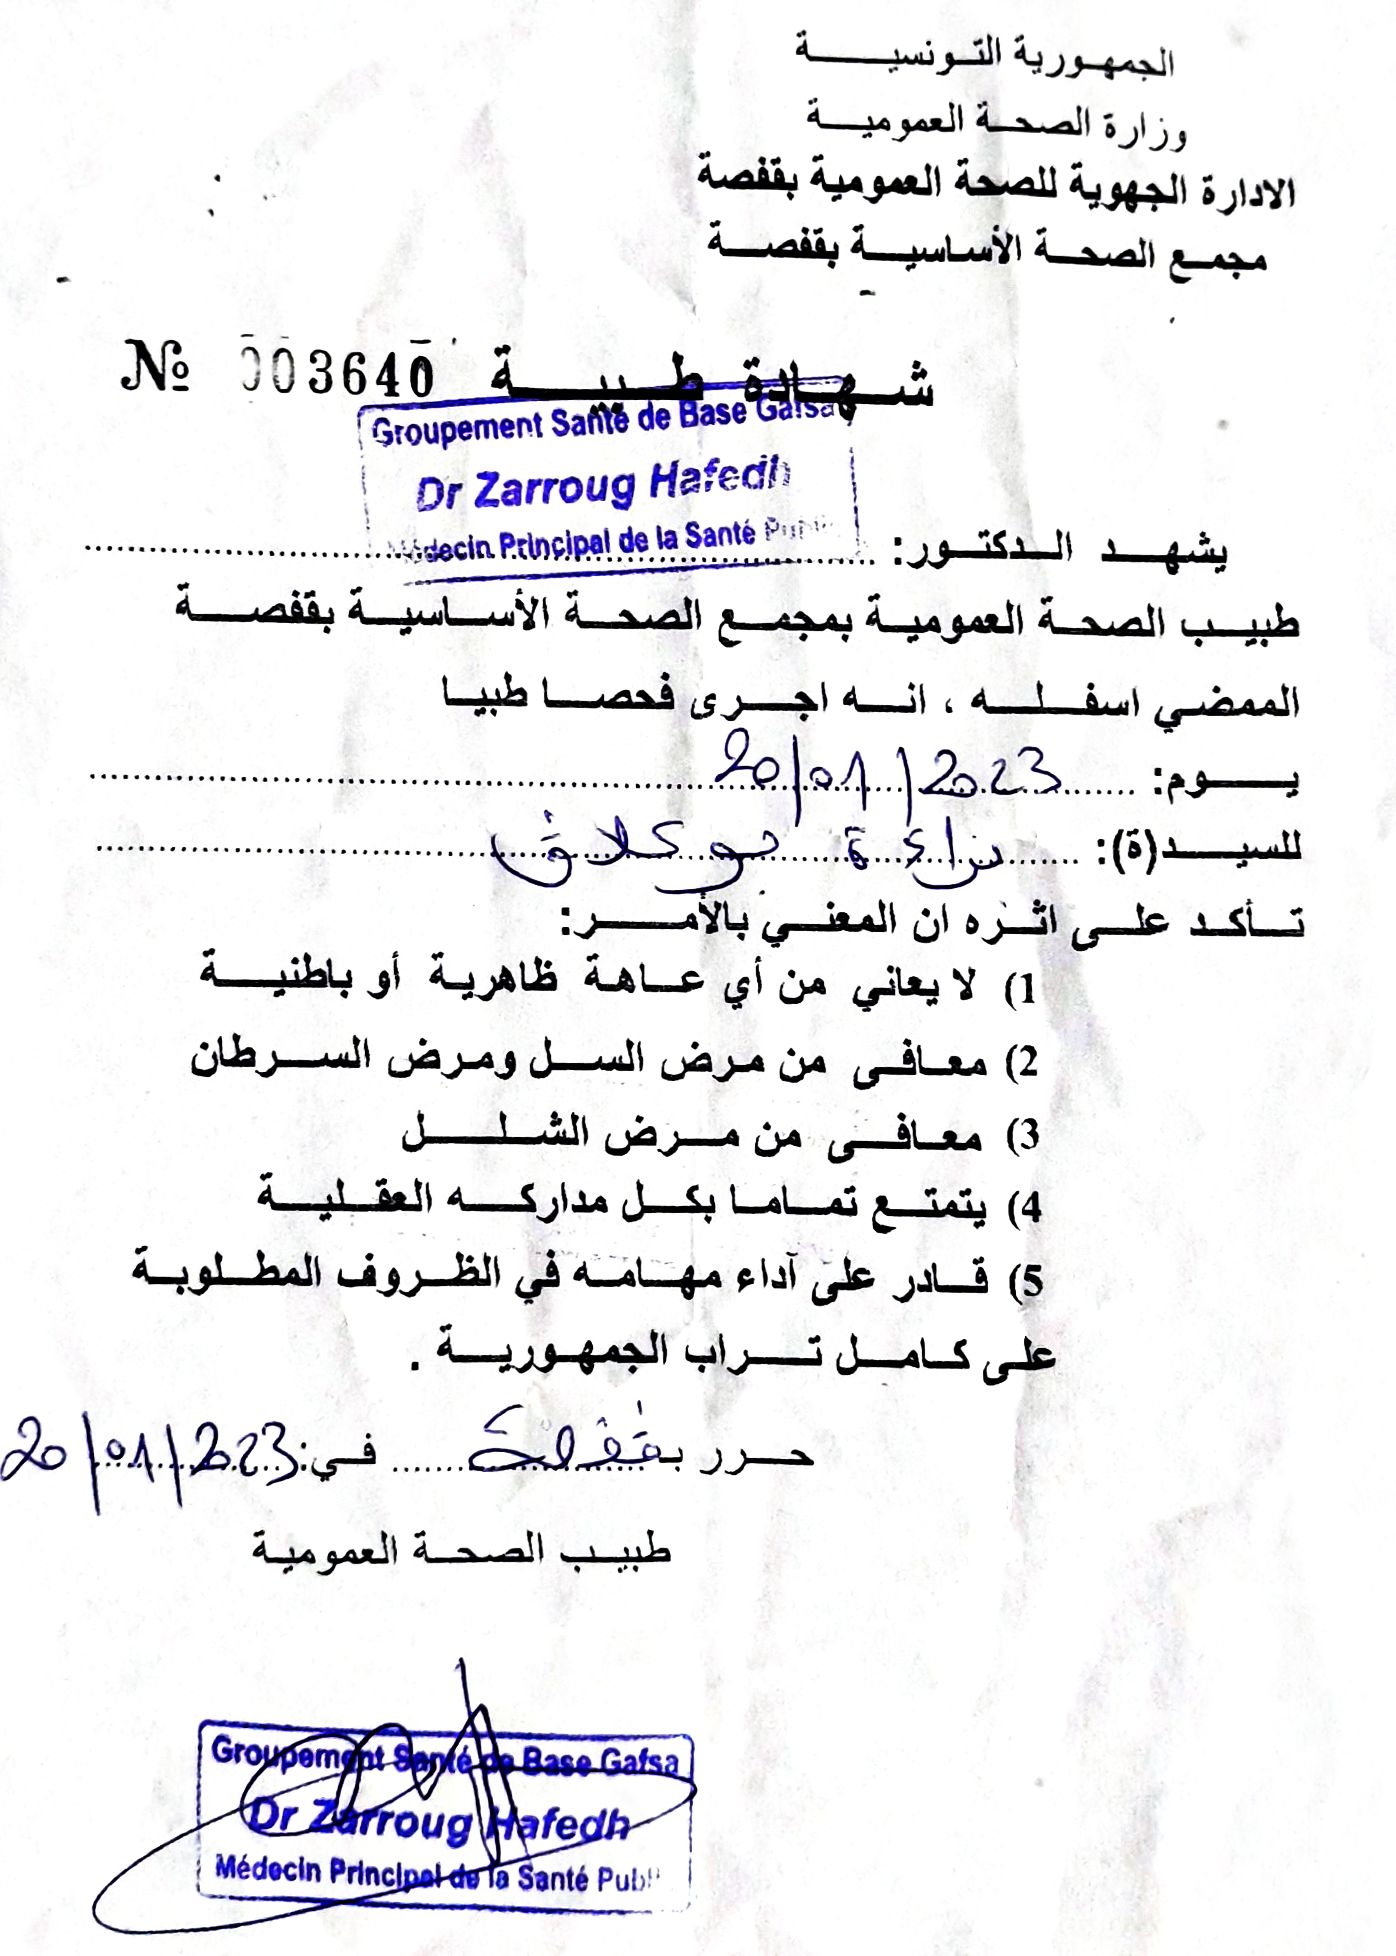 الجمهورية التونسية
وزارة الصحة العمومية
الادارة الجهوية للصحة العمومية بقفصة
مجمع الصحة الأساسية بقفصة
شهادة طبية № 003640
Groupement Santé de Base Gafsa
Dr Zarroug Hafedh
Médecin Principal de la Santé Publi
يشهد الدكتور:
طبيب الصحة العمومية بمجمع الصحة الأساسية بقفصة
الممضي اسفله ، انه اجرى فحصا طبيا
يوم: 20/01/2023
للسيد(ة):
تأكد على اثره ان المعني بالأمر:
1) لا يعاني من أي عاهة ظاهرية أو باطنية
2) معافى من مرض السل ومرض السرطان
3) معافى من مرض الشلل
4) يتمتع تماما بكل مداركه العقلية
5) قادر على آداء مهامه في الظروف المطلوبة
على كامل تراب الجمهورية .
حرر بقفصة في: 20/01/2023
طبيب الصحة العمومية
Groupement Santé de Base Gafsa
Dr Zarroug Hafedh
Médecin Principal de la Santé Publi